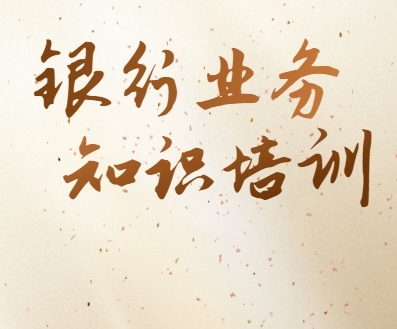 银行业务
知识培训